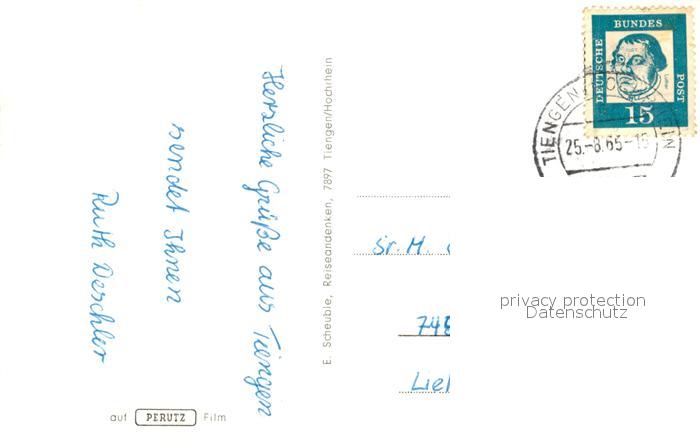 Herzliche Grüße aus Tiengen
sendet Ihnen
Ruth Deschler
auf PERUTZ Film
E. Scheuble, Reiseandenken, 7897 Tiengen/Hochrhein
DEUTSCHE
BUNDES
POST
Luther
15
TIENGEN
25.-8.65-18
EIN
Sr. M.
748
Liel
privacy protection
Datenschutz